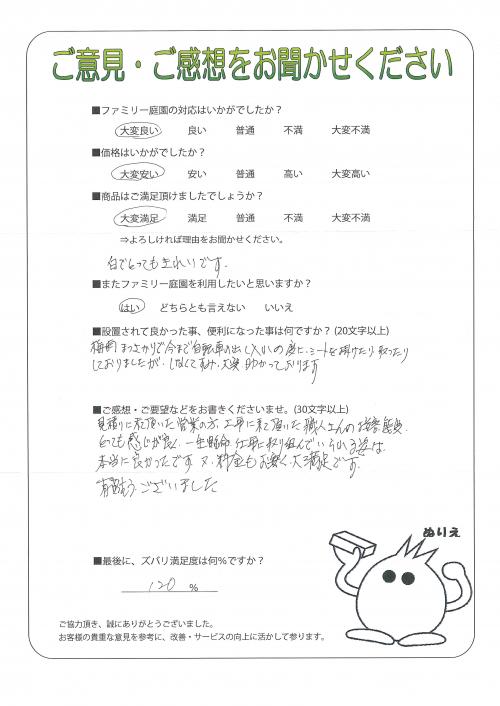 ご意見・ご感想をお聞かせください
■ファミリー庭園の対応はいかがでしたか？
大変良い 良い 普通 不満 大変不満
■価格はいかがでしたか？
大変安い 安い 普通 高い 大変高い
■商品はご満足頂けましたでしょうか？
大変満足 満足 普通 不満 大変不満
⇒よろしければ理由をお聞かせください。
白でとってもきれいです.
■またファミリー庭園を利用したいと思いますか？
はい どちらとも言えない いいえ
■設置されて良かった事、便利になった事は何ですか？ (20文字以上)
で今まで自転車の出し入れの度に、シートを掛けたり、取ったり
しておりましたが、しなくてすみ、大変、助かっております
■ご感想・ご要望などをお書きくださいませ。(30文字以上)
見積りに来て頂いた営業の方、工事に来て頂いた職人さんの接客態度、
とっても感じが良く、一生懸命、仕事に取り組んでいらいる姿は
本当に良かったです 又、料金もお安く、大満足です.
有難うございました
ぬりえ
■最後に、ズバリ満足度は何％ですか？
120 ％
ご協力頂き、誠にありがとうございました。
お客様の貴重な意見を参考に、改善・サービスの向上に活かして参ります。